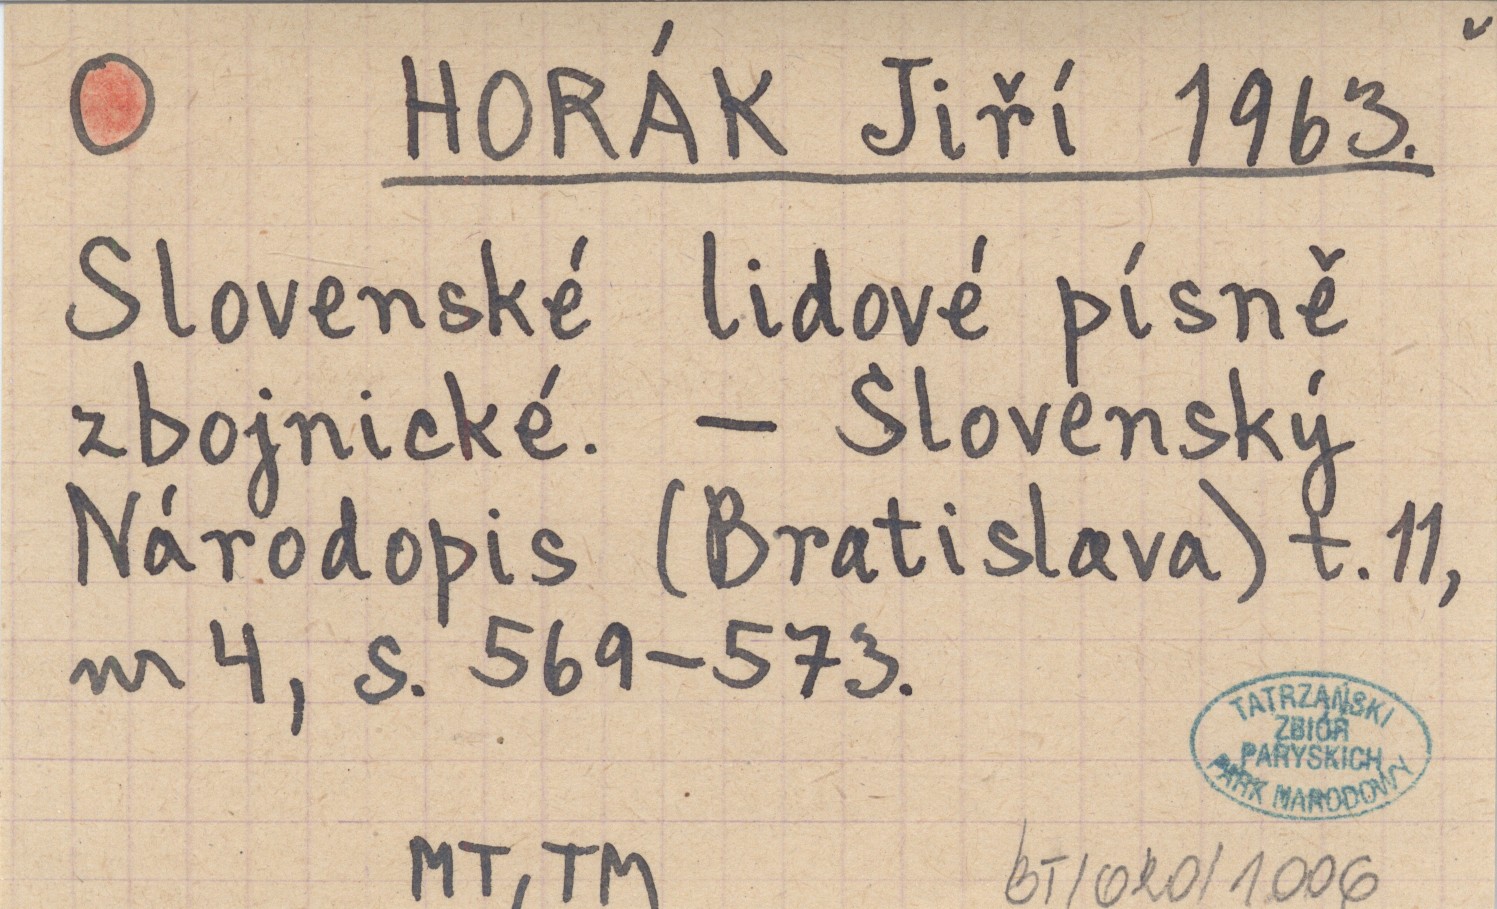 HORÁK Jiří 1963.
Slovenské lidové písně
zbojnické. – Slovenský
Národopis (Bratislava) t. 11,
nr 4, s. 569–573.
TATRZAŃSKI
ZBIÓR
PARYSKICH
PARK NARODOWY
MT, TM
BT/020/1006